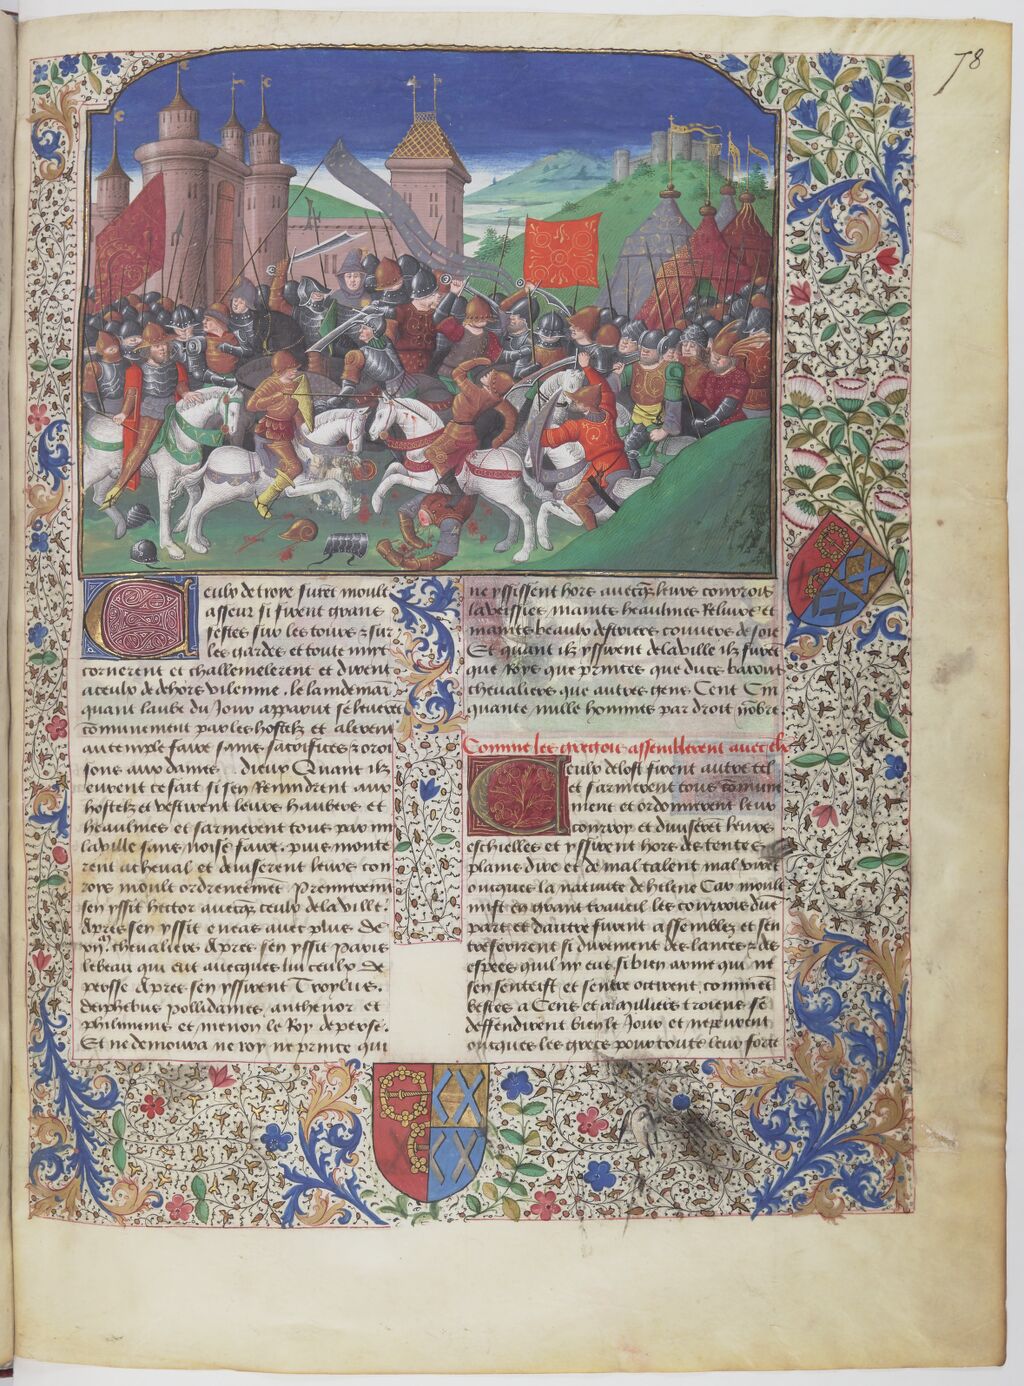 78
Ceulx de troye furēt moult
asseur si firent grans
festes sur les tours & sur
les gardes et toute nuyt
cornerent et challemelerent et dirent
a ceulx de dehors vilennie. le landemaī
quant laube du Jour apparut se leuerēt
cōmunement par les hostelz et alerent
au temple faire sacrifices & oroi
sons aux dames dieux Quant ilz
eurent ce fait si sen Reuindrent aux
hostelz et vestirent leurs haubers et
heaulmes et sarmerent tous par mi
la ville sans noise faire. puis monte
rent a cheval et diuiserent leurs con
rois moult ordreneemēt Premieremēt
sen yssit hector auecq̄s ceulx de la ville.
Apres sen yssit eneas auec plus de
chevaliers Apres sen yssit paris
le beau qui eut auecques lui ceulx de
perse Apres sen yssirent Troylus.
deiphebus pollidamas anthenor et
philimenis et menon le Roy de perse.
Et ne demoura ne roy ne prince qui
ne yssissent hors auecq̄s leurs conrois
La veissies maints heaulmes Reluire et
maints beaulx destriers couuers de soie
Et quant ilz yssirent de la ville ilz furēt
que Roys que princes que ducs barons
chevaliers que autres gens Cent Cin
quante mille hommes par droit nōbre
Comme les gregois assemblerent auec
Ceulx de lost firent autre tel
et sarmerent tous commu
nement et ordonnerent leur
conroy et diuiserēt leurs
eschielles et yssirent hors des tentes
plains dire et de mal talent mal
oncques la natiuite de helene Car moult
mist en grant traueil les conrois dune
part et dautre furent assemblez et sen
treferirent si durement des lances & des
espees quil ny eut si bien arme qui ne
sen sentist et sentre occirent comme
bestes a Cens et a milliers troiens se
deffendirent bien le Jour et ne peurent
oncques les grecs pour toute leur force